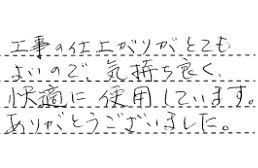 工事の仕上がりがとても
よいので、気持ち良く、
快適に使用しています。
ありがとうございました。